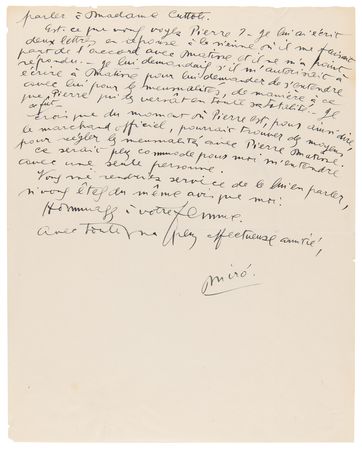 parler à Madame Cuttoli.
Est-ce que vous voyez Pierre ? - Je lui ai écrit
deux lettres en réponse à la sienne où il me faisait
part de l'accord avec Matisse et il ne m'a point
répondu. - Je lui demandais s'il m'autorisait à
écrire à Matisse pour lui demander de s'entendre
avec lui pour les mensualités, de manière à ce
que Pierre qui les versât en toute sa totalité. - Je
crois que du moment où Pierre est, pour ainsi dire
le marchand officiel, pourrait trouver des moyens
pour régler les mensualités avec Pierre Matisse,
ce serait plus commode pour moi m'entendre
avec une seule personne.
Vous me rendriez service de le lui en parler,
si vous êtes du même avis que moi.
Hommages à votre femme.
Avec toute ma plus affectueuse amitié,
Miró.